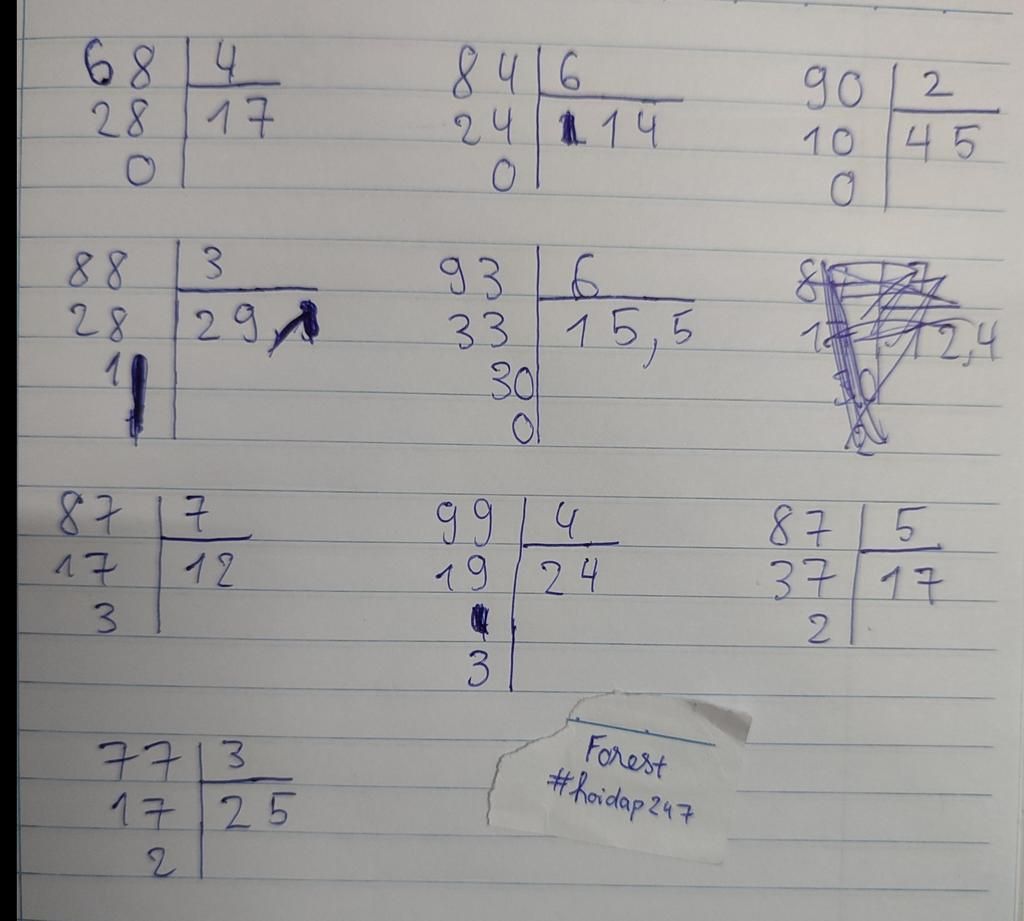 68 4 84 6 90 2
28 17 24 14 10 45
0 0 0
88 3 93 6
28 29 33 15,5 12,4
1 30
0
87 7 99 4 87 5
17 12 19 24 37 17
3 2
3
77 3
17 25
2
Forest
#hoidap247